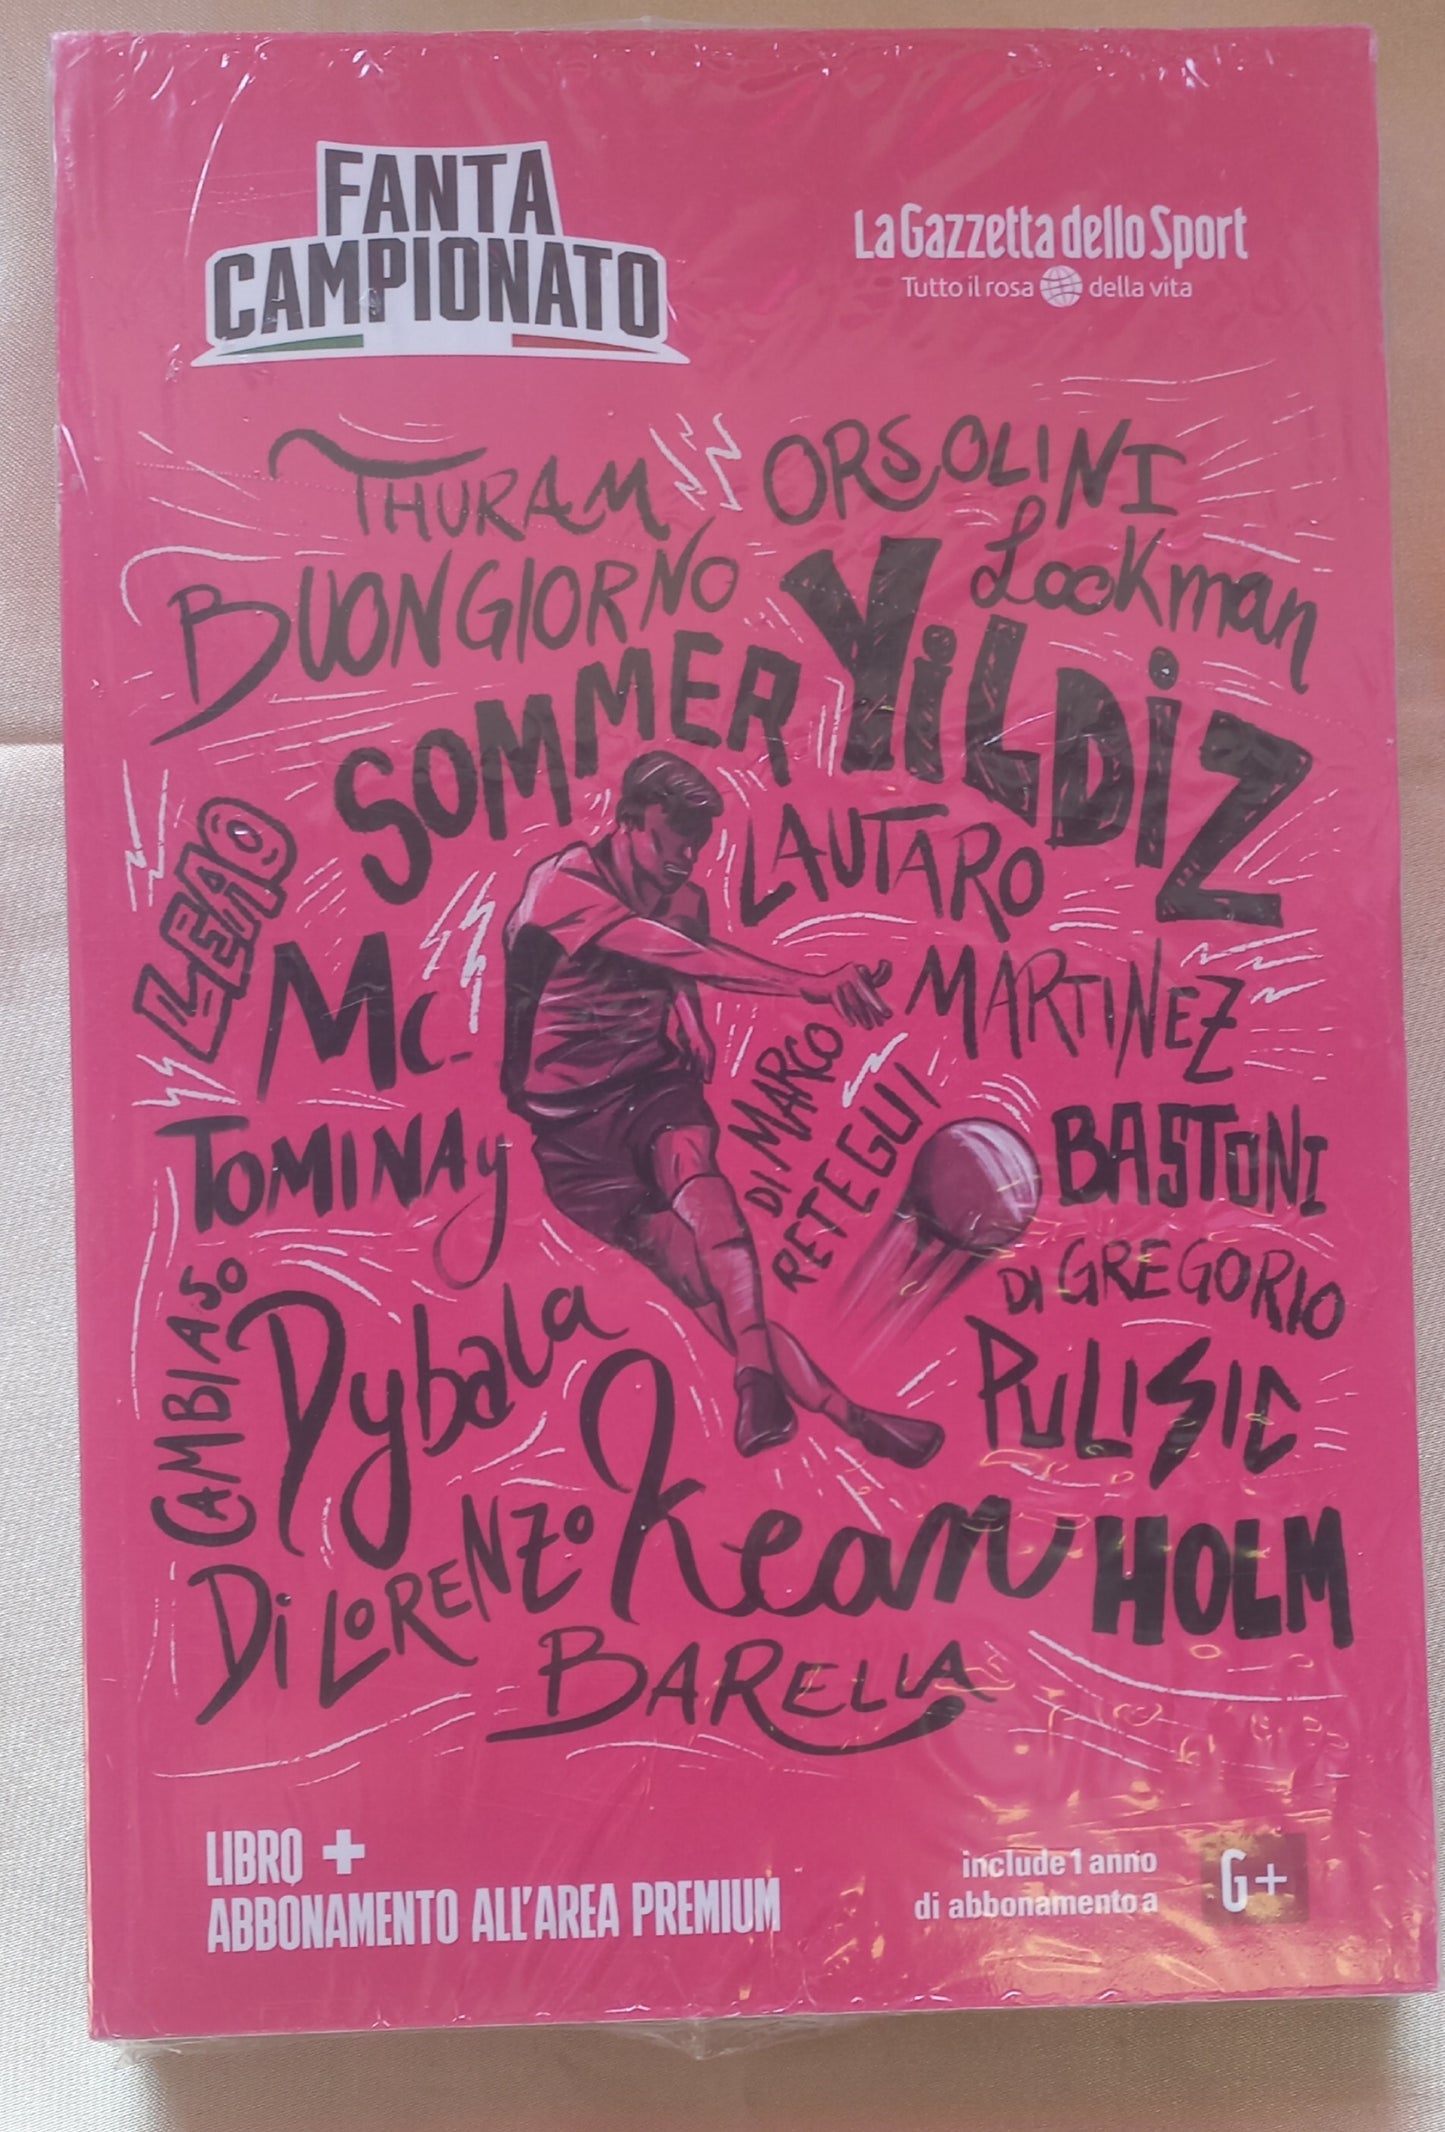 FANTA
CAMPIONATO
La Gazzetta dello Sport
Tutto il rosa della vita
THURAM
ORSOLINI
BUONGIORNO
Lookman
SOMMER
YiLDiZ
LEAO
LAUTARO
MARTINEZ
Mc-
TOMINAy
DI MARCO
RETEGUI
BASTONI
DI GREGORIO
CAMBIASO
Dybala
PULISIC
Kean
HOLM
Di LORENZO
BARELLA
LIBRO +
ABBONAMENTO ALL'AREA PREMIUM
include 1 anno
di abbonamento a
G+